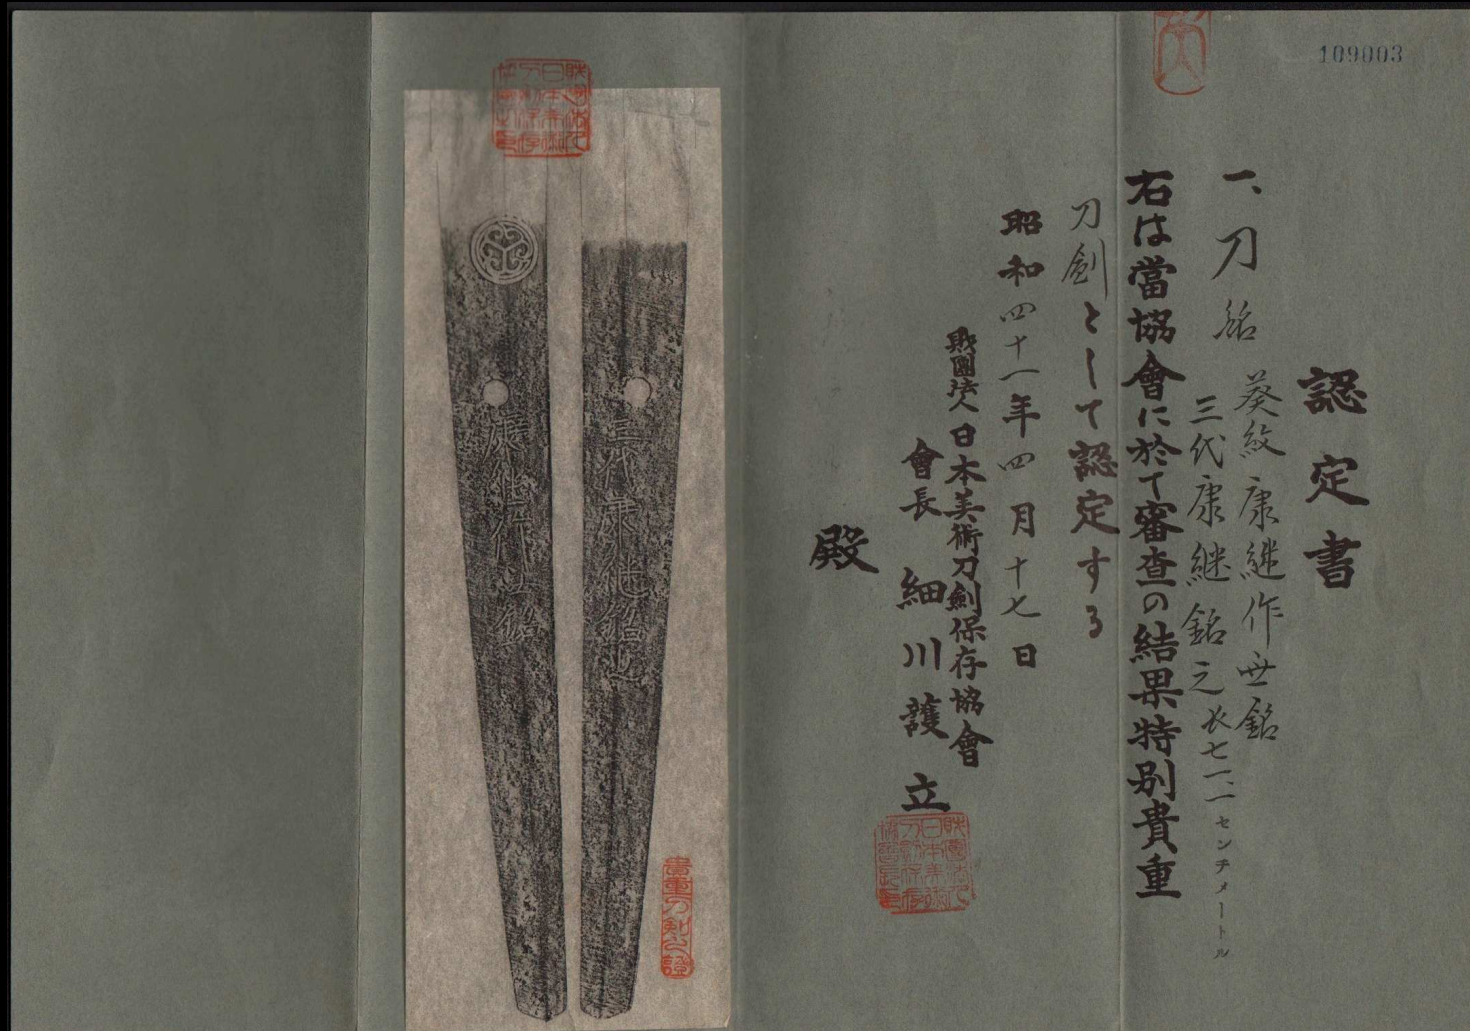 109003
認定書
一、刀 銘 葵紋 康継作 世銘
三代康継銘之 長七一、一センチメートル
右は當協會に於て審査の結果特別貴重
刀劍として認定する
昭和四十一年四月十七日
財團法人日本美術刀劍保存協會
會長 細川護立
殿
三代康継銘之
康継作 世銘
貴重刀剣之證